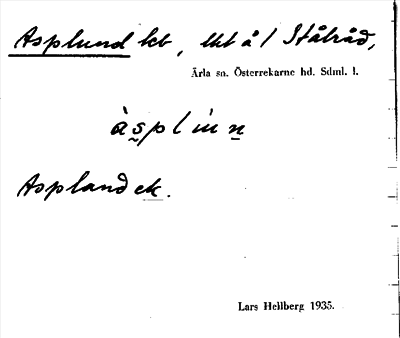 Asplund lct, tkt å 1 Stålråd,
Ärla sn. Österrekarne hd. Sdml. l.
àsplín
Aspland ek.
Lars Hellberg 1935.